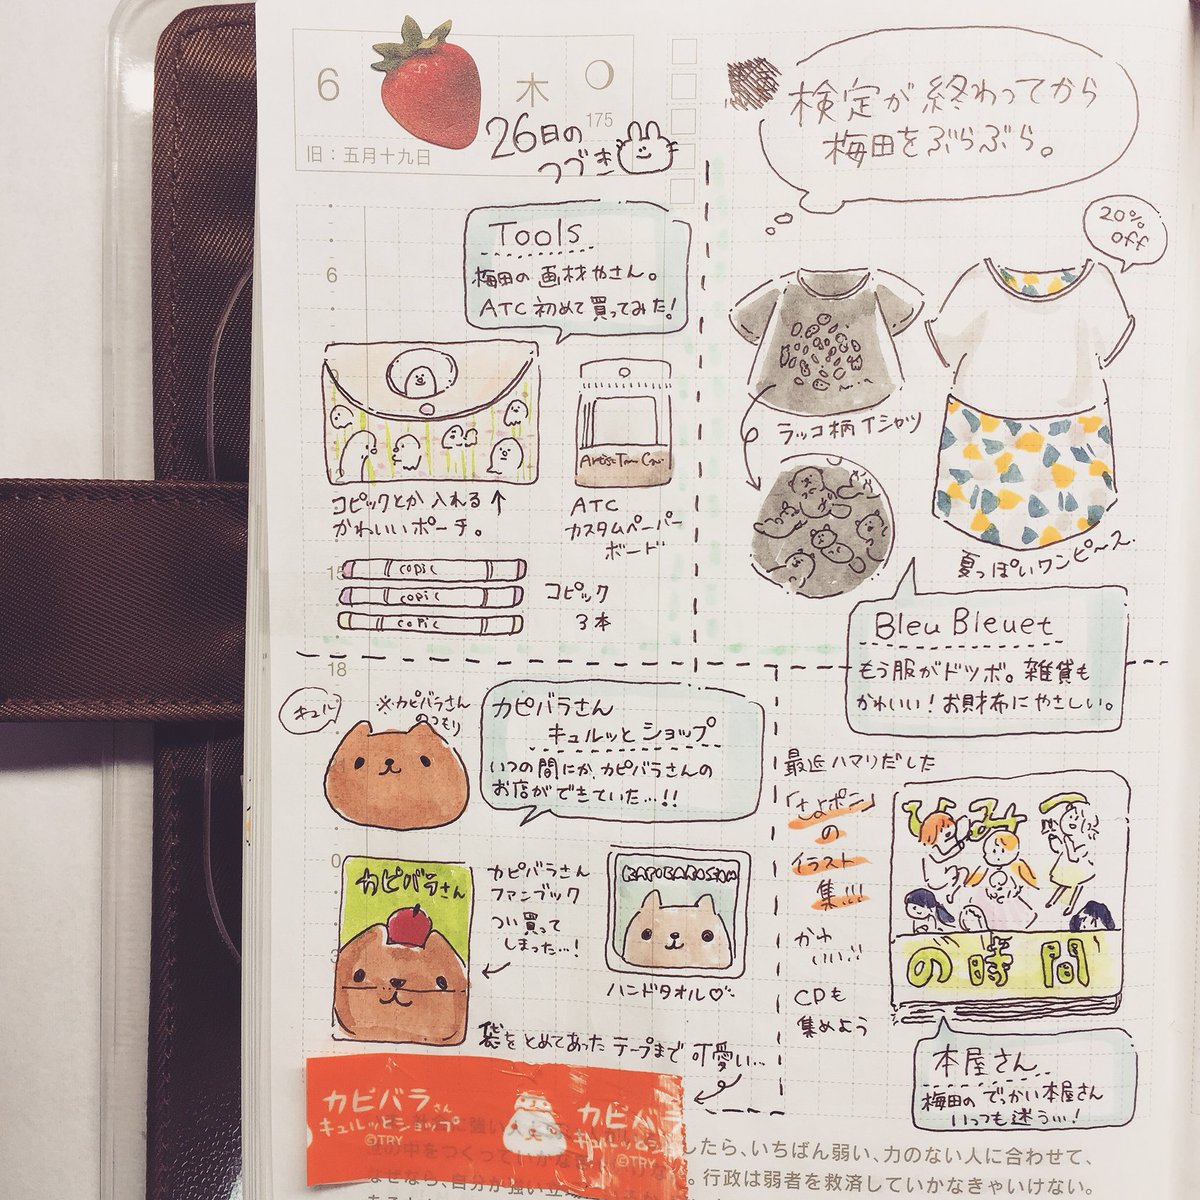 6
木
175
旧:五月十九日
26日の
つづき
検定が終わってから
梅田をぶらぶら。
20%
off
Tools
梅田の画材やさん。
ATC初めて買ってみた!
6
コピックとか入れる↑
かわいいポーチ。
Artist Tra Car
ATC
カスタムペーパー
ボード
15
copic
copic
copic
コピック
3本
ラッコ柄Tシャツ
夏っぽいワンピース
Bleu Bleuet
もう服がドツボ。雑貨も
かわいい!お財布にやさしい。
18
キュル
※カピバラさん
のつもり
カピバラさん
キュルッとショップ
いつの間にか、カピバラさんの
お店ができていた…!!
0
カピバラさん
カピバラさん
ファンブック
つい買って
しまった…!
KAPIBARASAN
ハンドタオル♡
3
袋をとめてあったテープまで可愛い…
最近ハマりだした
「さよポニ」
の
イラスト
集!!!
かわ
いい!!
CDも
集めよう
ひみつ
の時間
本屋さん
梅田のでっかい本屋さん
いつも迷う…!
カピバラさん
キュルッとショップ
©TRY
カピバラ
キュルッとシ
©TRY
したら、いちばん弱い、力のない人に合わせて、
世の中をつくっていかな
。行政は弱者を救済していかなきゃいけない。
なぜなら、自分が強い立